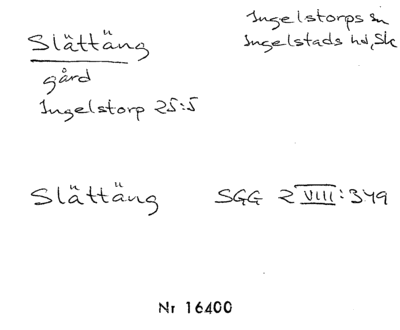 Slättäng
gård
Ingelstorp 25:5
Ingelstorps sn
Ingelstads hd, Sk
Slättäng SGG 2 VIII:349
Nr 16400